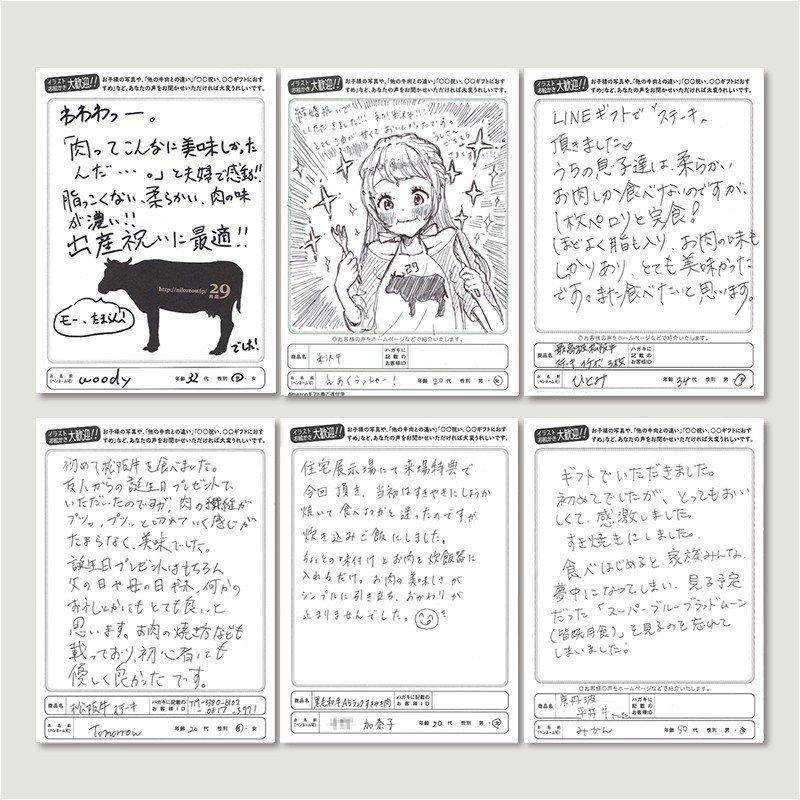 イラスト
お絵かき
大歓迎!!
お子様の写真や、「他の牛肉との違い」「〇〇祝い、〇〇ギフトにおす
すめ」など、あなたの声をお聞かせいただければ大変うれしいです。
わわわっー。
「肉ってこんなに美味しかった
んだ・・・。」と夫婦で感動!!
脂っこくない、柔らかい、肉の味
が濃い!!
出産祝いに最適!!
http://nikuzou.jp/
29
肉蔵
モー、たまらん!
でしょ!
お名前
(ペンネーム可)
woody
年齢 32 代 性別 男・女
イラスト
お絵かき
大歓迎!!
お子様の写真や、「他の牛肉との違い」「〇〇祝い、〇〇ギフトにおす
すめ」など、あなたの声をお聞かせいただければ大変うれしいです。
結婚祝いで
いただきました!!
とても油が甘くておいしかったです。
29
◎お客様の声をホームページなどで紹介いたします。
商品名
米沢牛
ハガキに
記載の
お客様ID
お名前
(ペンネーム可)
年齢 20 代 性別 男・女
イラスト
お絵かき
大歓迎!!
お子様の写真や、「他の牛肉との違い」「〇〇祝い、〇〇ギフトにおす
すめ」など、あなたの声をお聞かせいただければ大変うれしいです。
LINEギフトで"ステーキ"
頂きました♡
うちの息子達は、柔らかい
お肉しか食べないのですが、
1枚ペロリと完食!
ほどよく脂も入り、お肉の味も
しっかりあり、とても美味かった
です。また食べたいと思います。
◎お客様の声をホームページなどで紹介いたします。
商品名
最高級松阪牛
ステーキ イチボ 3枚
ハガキに
記載の
お客様ID
お名前
(ペンネーム可)
ひとみ
年齢 34 代 性別 男・女
イラスト
お絵かき
大歓迎!!
お子様の写真や、「他の牛肉との違い」「〇〇祝い、〇〇ギフトにおす
すめ」など、あなたの声をお聞かせいただければ大変うれしいです。
初めて松阪牛を食べました。
友人からの誕生日プレゼントで
いただいたのですが、肉の繊維が
プツッ、プツッと切れていく感じが
たまらなく、美味でした。
誕生日プレゼントはもちろん
父の日や母の日、何かの
お礼とかにもとても良いと
思います。お肉の焼き方なども
載っており、初心者にも
優しく良かったです。
商品名
松阪牛ステーキ
ハガキに記載の
お客様ID
お名前
(ペンネーム可)
Tomorrow
年齢 20 代 性別 男・女
イラスト
お絵かき
大歓迎!!
お子様の写真や、「他の牛肉との違い」「〇〇祝い、〇〇ギフトにおす
すめ」など、あなたの声をお聞かせいただければ大変うれしいです。
住宅展示場にて来場特典で
今回頂き、当初はすきやきにしようか
焼いて食べようかと迷ったのですが
炊き込みご飯にしました。
ちょっとの味付けとお肉を炊飯器に
入れるだけ。お肉の美味しさが
シンプルに引き立ち、おかわりが
止まりませんでした。
商品名
黒毛和牛A5ランクすきやき肉
ハガキに記載の
お客様ID
お名前
(ペンネーム可)
加奈子
年齢 20 代 性別 男・女
イラスト
お絵かき
大歓迎!!
お子様の写真や、「他の牛肉との違い」「〇〇祝い、〇〇ギフトにおす
すめ」など、あなたの声をお聞かせいただければ大変うれしいです。
ギフトでいただきました。
初めてでしたが、とってもおい
しくて、感激しました。
すき焼きにしました。
食べはじめると、家族みんな、
夢中になってしまい、見る予定
だった「スーパーブルーブラッドムーン
(皆既月食)」を見るのを忘れて
しまいました!
◎お客様の声をホームページなどで紹介いたします。
商品名
京丹波
平井牛
ハガキに
記載の
お客様ID
お名前
(ペンネーム可)
みかん
年齢 50 代 性別 男・女